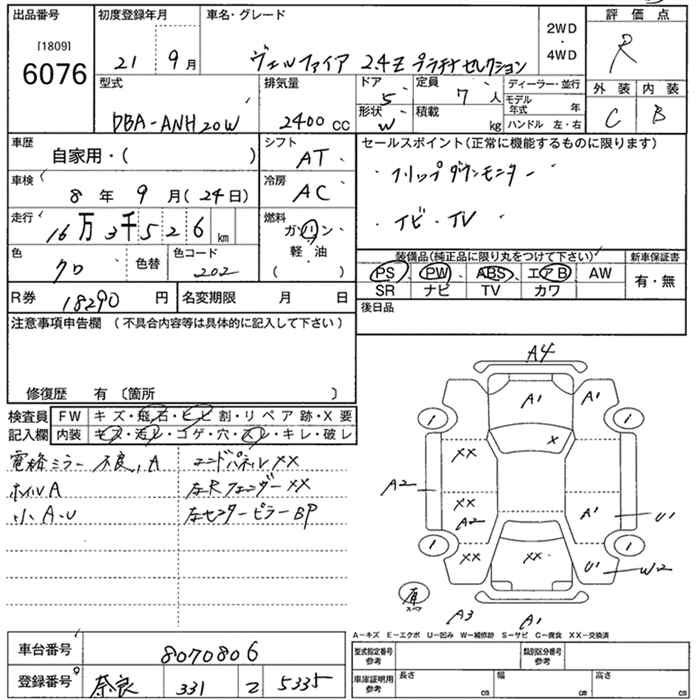 出品番号
[1809]
6076
初度登録年月
21 9月
車名・グレード
ヴェルファイア 2.4Z プラチナセレクション
2WD
・
4WD
評価点
R
外装 内装
C B
型式
DBA-ANH20W
排気量
2400 cc
ドア
5
形状
W
定員
7 人
積載
kg
ディーラー・並行
モデル年式 年
ハンドル 左・右
車歴
自家用・( )
シフト
AT
車検
8年 9月(24日)
冷房
AC
走行
16万3千526km
燃料
ガソリン
軽・油
( )
色
クロ
色替
色コード
202
R券
18290円
名変期限 月 日
セールスポイント(正常に機能するものに限ります)
・フリップダウンモニター
・ナビ・TV
装備品(純正品に限り丸をつけて下さい)
新車保証書
PS PW ABS エアB AW
SR ナビ TV カワ
有・無
後日品
注意事項申告欄 (不具合内容等は具体的に記入して下さい)
修復歴 有 〔箇所 〕
検査員
記入欄
FW キズ・飛石・ヒビ割・リペア跡・X要
内装 キズ・汚レ・コゲ・穴・スレ・キレ・破レ
電格ミラー不良,A エンドパネルXX
ホイルA 左Rフェンダー XX
小A・U 左センターピラーBP
A4
A1 A1
1 1
X
XX
A2 XX
A2 A1 U1
1 1
XX XX U1 W2
有
スペア
A3 A1
A-キズ E-エクボ U-凹み W-補修跡 S-サビ C-腐食 XX-交換済
車台番号
8070806
登録番号
奈良 331 ス 5335
型式指定番号
参考
類別区分番号
参考
車庫証明用
参考
長さ cm
幅 cm
高さ cm